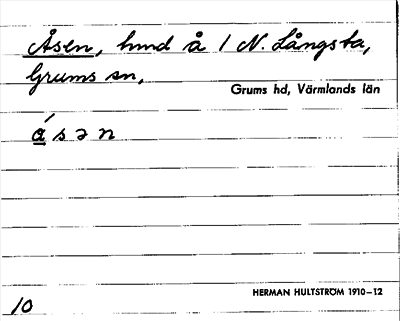 Åsen, hmd å 1 N. Långsta,
Grums sn,
Grums hd, Värmlands län
ɑ́ s ə n
HERMAN HULTSTRÖM 1910–12
10